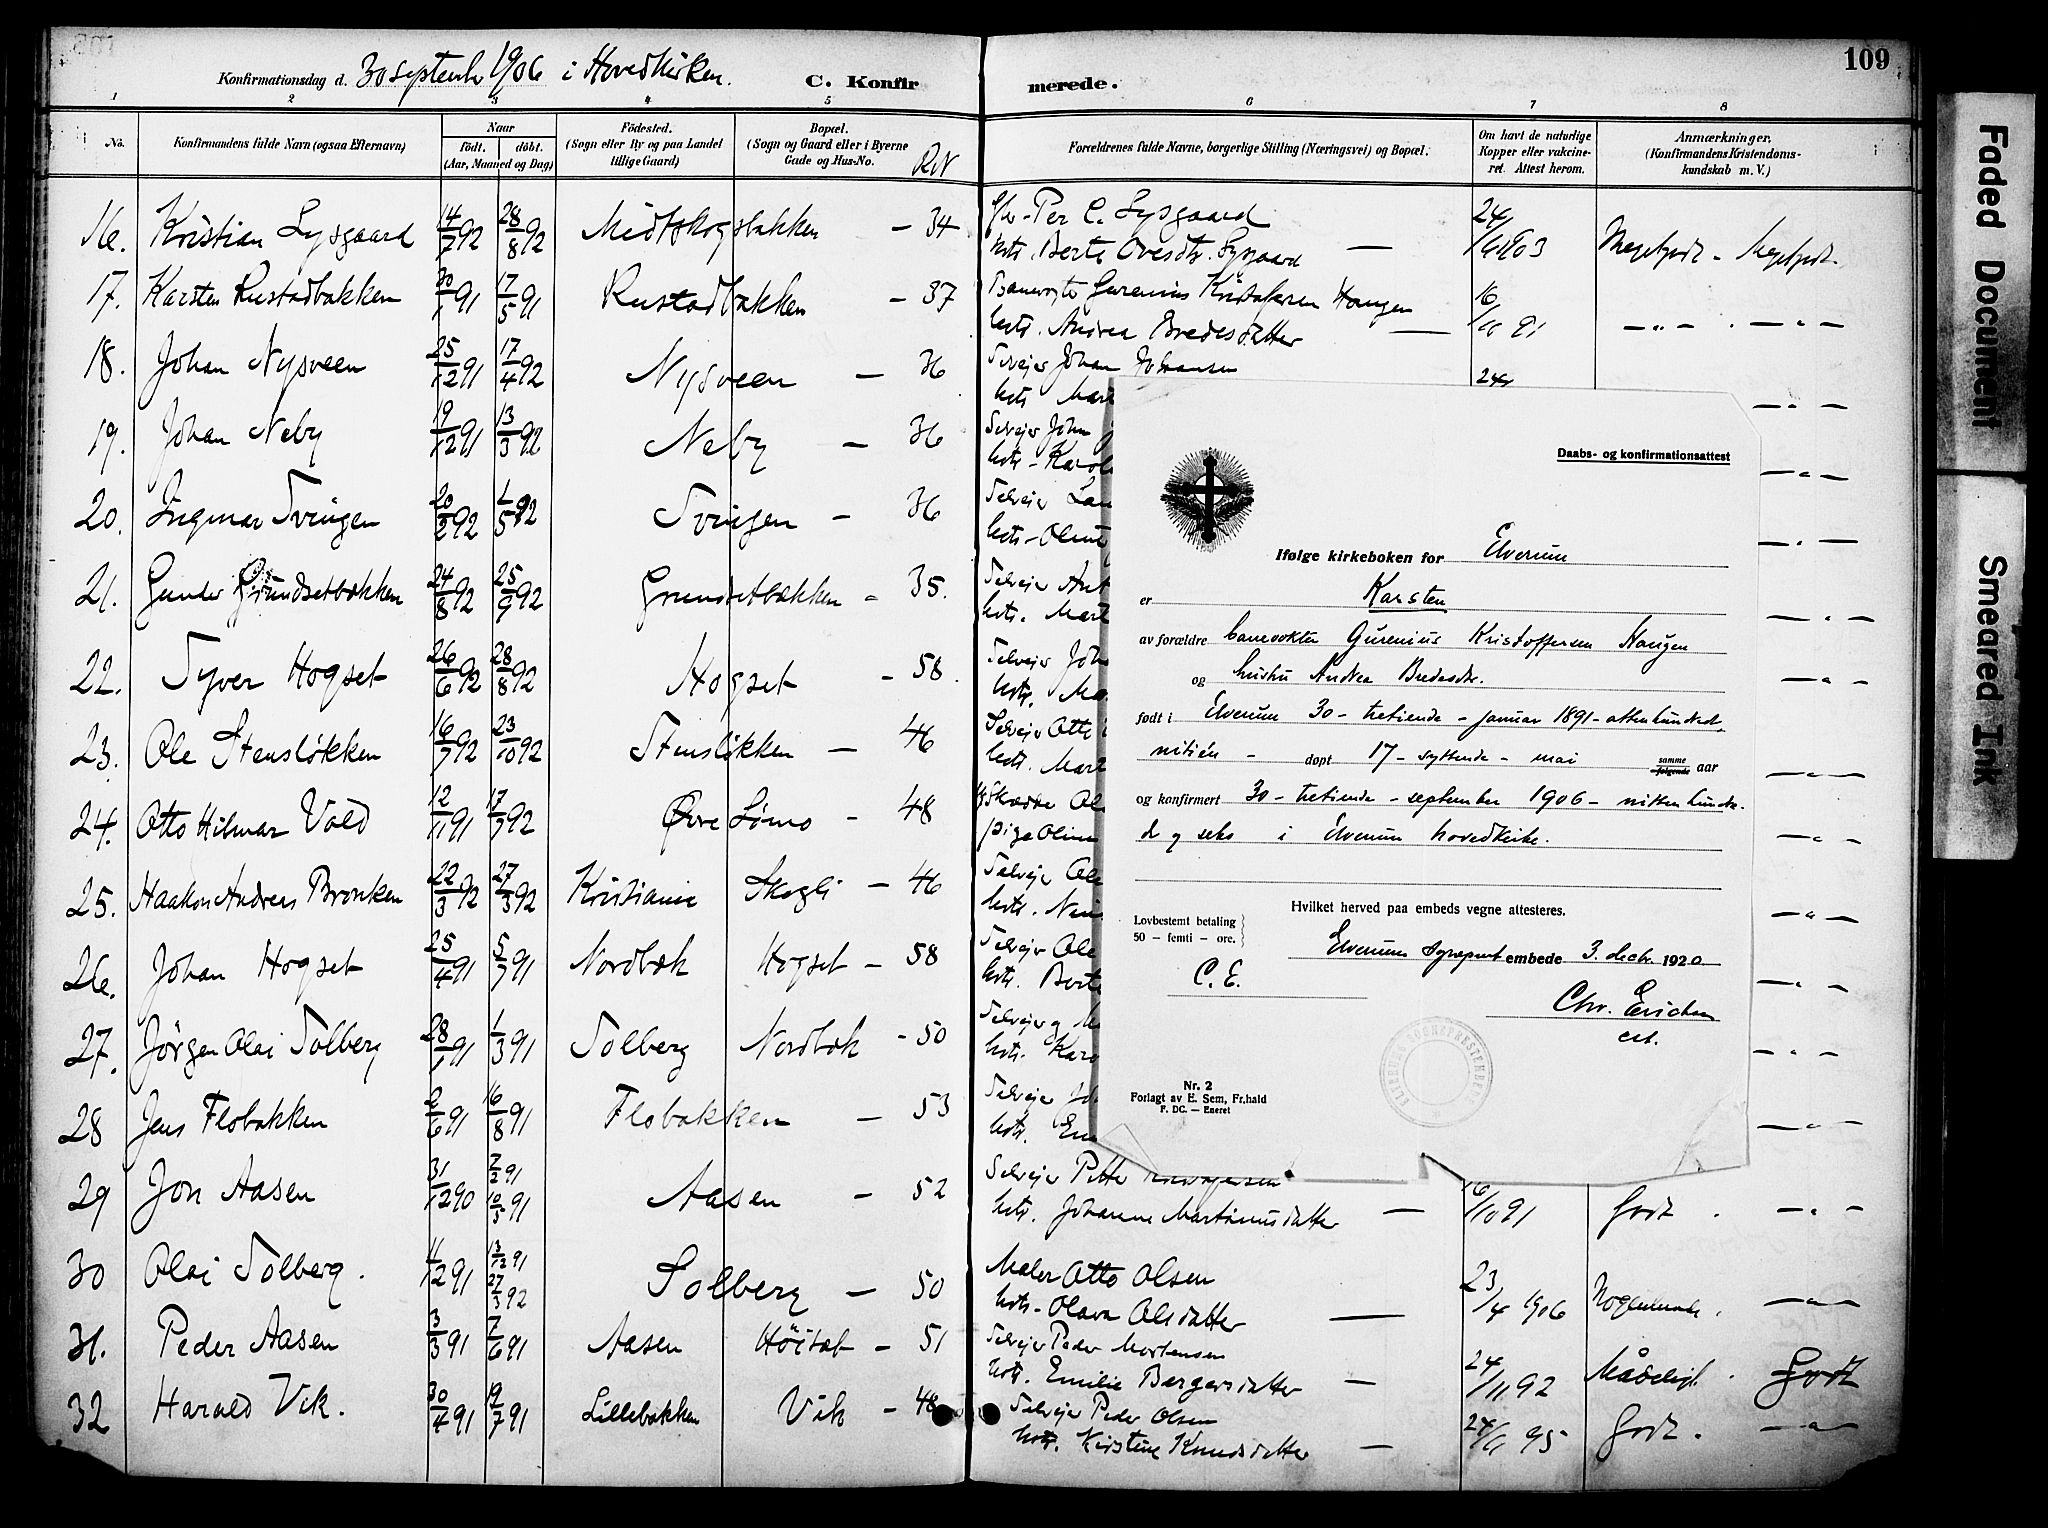 109
Konfirmationsdag d. 30 septembr 1906 i Hovedkirken.
C. Konfirmerede.
1 2 3 4 5 6 7 8
No.
Konfirmandens fulde Navn (ogsaa Efternavn)
Naar
födt. döbt.
(Aar, Maaned og Dag)
Födested.
(Sogn eller By og paa Landet
tillige Gaard)
Bopæl.
(Sogn og Gaard eller i Byerne
Gade og Hus-No.
Forældrenes fulde Navne, borgerlige Stilling (Næringsvei) og Bopæl.
Om havt de naturlige
Kopper eller vakcine-
ret. Attest herom.
Anmærkninger.
(Konfirmandens Kristendoms-
kundskab m. V.)
16. Kristian Lysgaard 14/7 92 28/8 92 Midtskogsbakken - 34 Per C. Lysgaard
hstr. Berte Ovesdtr. Lysgaard — 24/11 1903 Megetgodt - Megetgodt.
17. Karsten Rustadbakken 30/1 91 17/5 91 Rustadbakken - 37 Banevogter Gurenius Kristofersen Haugen
hstr. Andrea Bredesdatter — 16/10 91 — „ — . — „ —
18. Johan Nysveen 25/12 91 17/4 92 Nysveen — 36 Selvejer Johan Johansen 24
hstr. Mart — „ —
19. Johan Neby 19/12 91 13/3 92 Neby — 36 Selvejer John
hstr. Karol — „ —
20. Ingmar Svingen 20/2 92 1/5 92 Svingen — 36 Selvejer Lar
hstr. Oline — „ —
21. Gunder Grundsetbækken 24/8 92 25/9 92 Grundsetbækken - 35. Selvejer Ant
hstr. Mart — „ —
22. Syver Hogset 26/6 92 28/8 92 Hogset - 58. Selvejer Joh
hstr. Ma — „ —
23. Ole Stensløkken 16/7 92 23/10 92 Stensløkken — 46 Selvejer Otto
hstr. Mart — „ —
24. Otto Hilmar Vold 12/11 91 17/7 92 Øvre Lømo - 48 Ol
pige Olin — „ —
25. Haakon Andreas Bronken 22/3 92 27/3 92 Kristiania Skogli - 46 Selvejer Ole
hstr. — „ —
26. Johan Hogset 25/4 91 5/7 91 Nordbæk Hogset - 58 Selvejer Ole
hstr. Berte — „ —
27. Jörgen Olai Solberg 28/1 91 1/3 91 Solberg Nordbæk - 50 Selvejer
hstr. Karo — „ —
28 Jens Flobakken 2/6 91 16/8 91 Flobakken — 53 Selvejer Jo
hstr. — „ —
29 Jon Aasen 31/12 90 7/2 91 10/5 91 Aasen — 52 Selvejer Petter
hstr. Johanne Martinusdatter — 16/10 91 Godt . — „ —
30 Olai Solberg. 11/12 91 13/12 91 27/3 92 Solberg — 50 Maler Otto Olsen
hstr. Olava Olsdatter — 23/4 1906 Nogenlunde . — „ —
31. Peder Aasen 3/3 91 7/6 91 Aasen Höisæt - 51 Selvejer Peder Mortensen
hstr. Emilie Børgersdatter — 24/11 92 Mådeligt . Godt
32 Harald Vik. 30/4 91 12/7 91 Lillebakken Vik - 48 Selvejer Peder Olsen
hstr. Kirstine Knudsdatter — 24/11 95 Godt . — „ —
Daabs- og konfirmationsattest
Ifølge kirkeboken for Elverum
er Karsten
av forældre banevokter Gurenius Kristoffersen Haugen
og hustru Andrea Bredesdtr.
født i Elverum 30 - tretiende - januar 1891 - attenhundred
nitién - døpt 17 - syttende - mai samme følgende aar
og konfirmert 30 - tretiende - september 1906 - nittenhundre-
de og seks i Elverum hovedkirke.
Hvilket herved paa embeds vegne attesteres.
Lovbestemt betaling
50 – femti – øre.
Elverum sogneprestembede 3. decbr. 1920
C. E.
Chr. Erichsen
cst.
ELVERUM SOGNEPRESTEMBEDE
Nr. 2
Forlagt av E. Sem, Fr.hald
F. DC. — Eneret
Faded Document
Smeared Ink